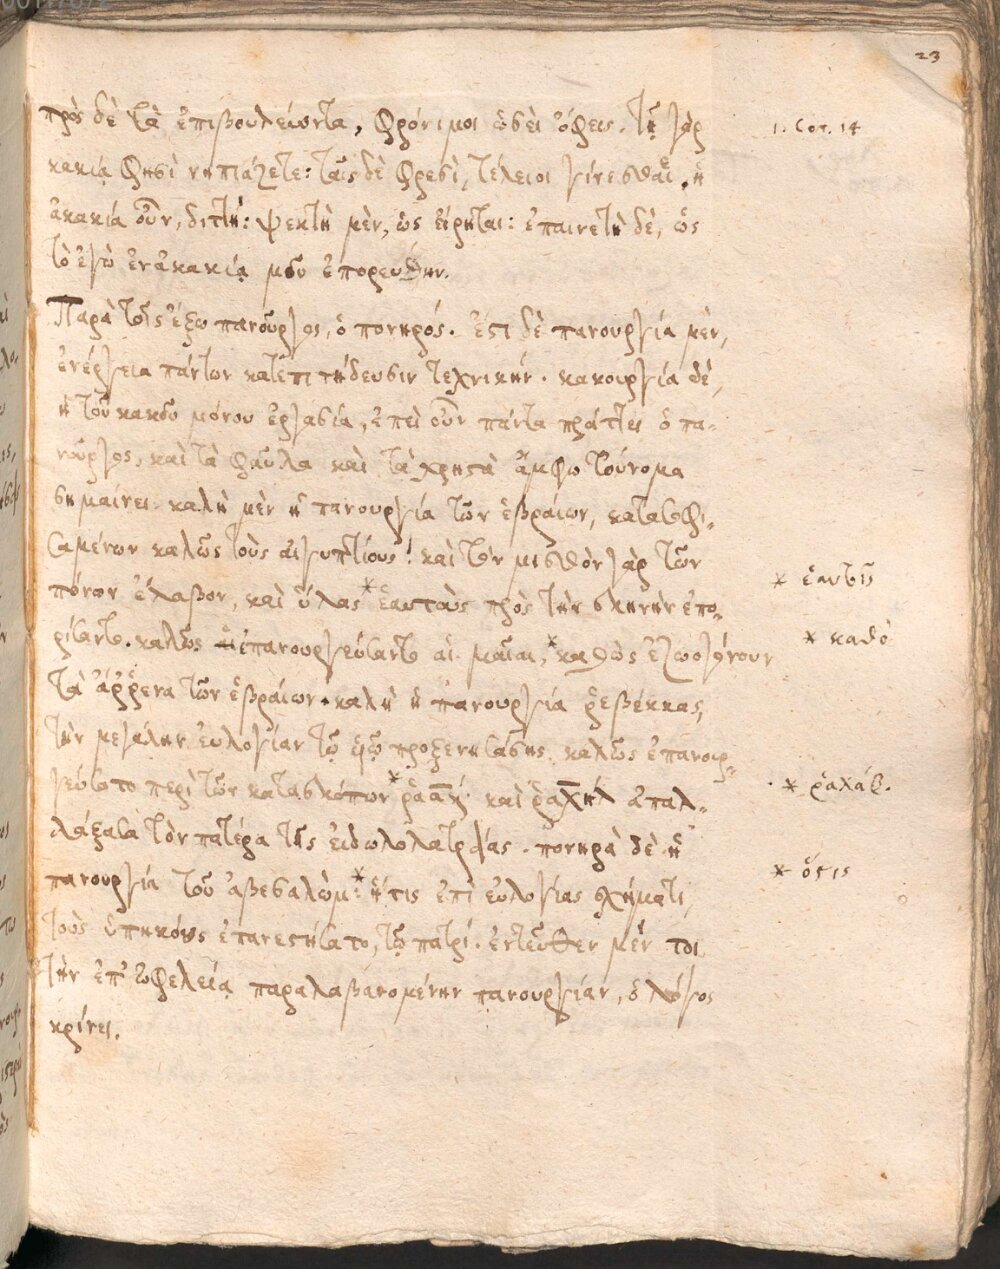 23
πρὸς δὲ τὰ ἐπιβουλεύοντα, φρόνιμοι ὡσεὶ ὄφεις. τῇ γὰρ
1. Cor. 14
κακίᾳ φησὶ νηπιάζετε: ταῖς δὲ φρεσὶ, τέλειοι γίνεσθαι. ἡ
ἀκακία οὖν, διττή: ψεκτὴ μὲν, ὡς εἴρηται: ἐπαινετὴ δὲ, ὡς
τὸ ἐγὼ ἐν ἀκακίᾳ μου ἐπορεύθην.
Παρὰ τοῖς ἔξω πανοῦργος, ὁ πονηρός. ἔστι δὲ πανουργία μὲν,
ἐνέργεια πάντων κατ' ἐπιτήδευσιν τεχνικήν. κακουργία δὲ,
ἡ τοῦ κακοῦ μόνου ἐργασία, ἐπεὶ οὖν πάντα πράττει ὁ πα-
νοῦργος, καὶ τὰ φαῦλα καὶ τὰ χρηστὰ ἄμφω τοὔνομα
σημαίνει. καλὴ μὲν ἡ πανουργία τῶν ἑβραίων, κατασοφι-
σαμένων καλῶς τοὺς αἰγυπτίους! καὶ τὸν μισθὸν γὰρ τῶν
πόνων ἔλαβον, καὶ ὕλας * ἑαυταὺς πρὸς τὴν σκηνὴν ἐπο-
* ἑαυτοῖς
ρίσαντο. καλῶς ἐπανουργεύσαντο αἱ μαῖαι, * καθὼς ἐζωογόνουν
* καθὸ
τὰ ἄῤῥενα τῶν ἑβραίων. καλὴ ἡ πανουργία ῥεβέκκας,
τὴν μεγάλην εὐλογίαν τῷ υἱῷ προξενησάσης. καλῶς ἐπανουρ-
γεύσατο περὶ τῶν κατασκόπων * καὶ ῥαχὴλ ἀπαλ-
* ῥαχάβ.
λάξασα τὸν πατέρα τῆς εἰδωλολατρείας. πονηρὰ δὲ ἡ
πανουργία τοῦ ἀβεσαλὼμ: * ἥτις ἐπὶ εὐλογίας σχήματι,
* ὅστις
τοὺς ὑπηκόους ἐπανεστήσατο, τῷ πατρί. ἐντεῦθεν μέν τοι
τὴν ἐπ' ὠφελείᾳ παραλαβανομένην πανουργίαν, ὁ λόγος
κρίνει.